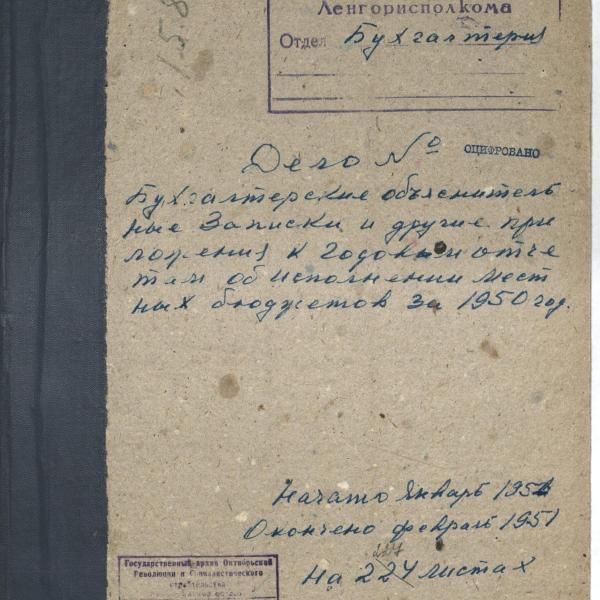 158
Ленгорисполкома
Отдел Бухгалтерия
Дело №
ОЦИФРОВАНО
Бухгалтерские объяснитель
ные Записки и другие при
ложения к годовым отче
там об исполнении мест
ных бюджетов за 1950 год.
Начато Январь 1951
Окончено февраль 1951
227
На 224 листах
Государственный архив Октябрьской
Революции и Социалистического
строительства